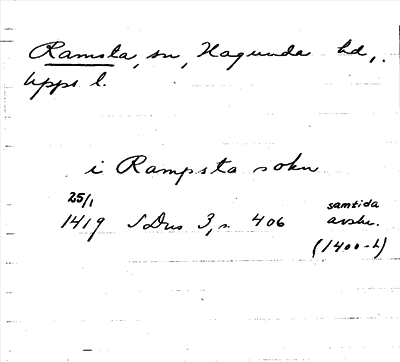 Ramsta, sn, Hagunda hd,
Upps l.
i Rampsta sokn
25/1
1419 SDns 3, s. 406
samtida
avskr.
(1400-t)